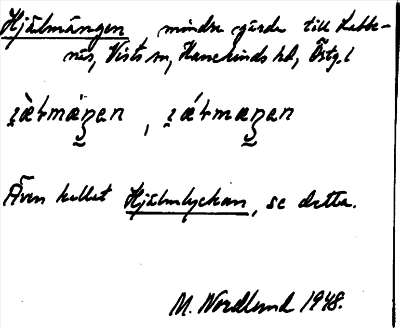 Hjälmängen mindre gärde till Labbe-
näs, Vists sn, Hanekinds hd, Östg.l
Även kallat Hjälmlyckan, se detta.
M. Nordlund 1948.